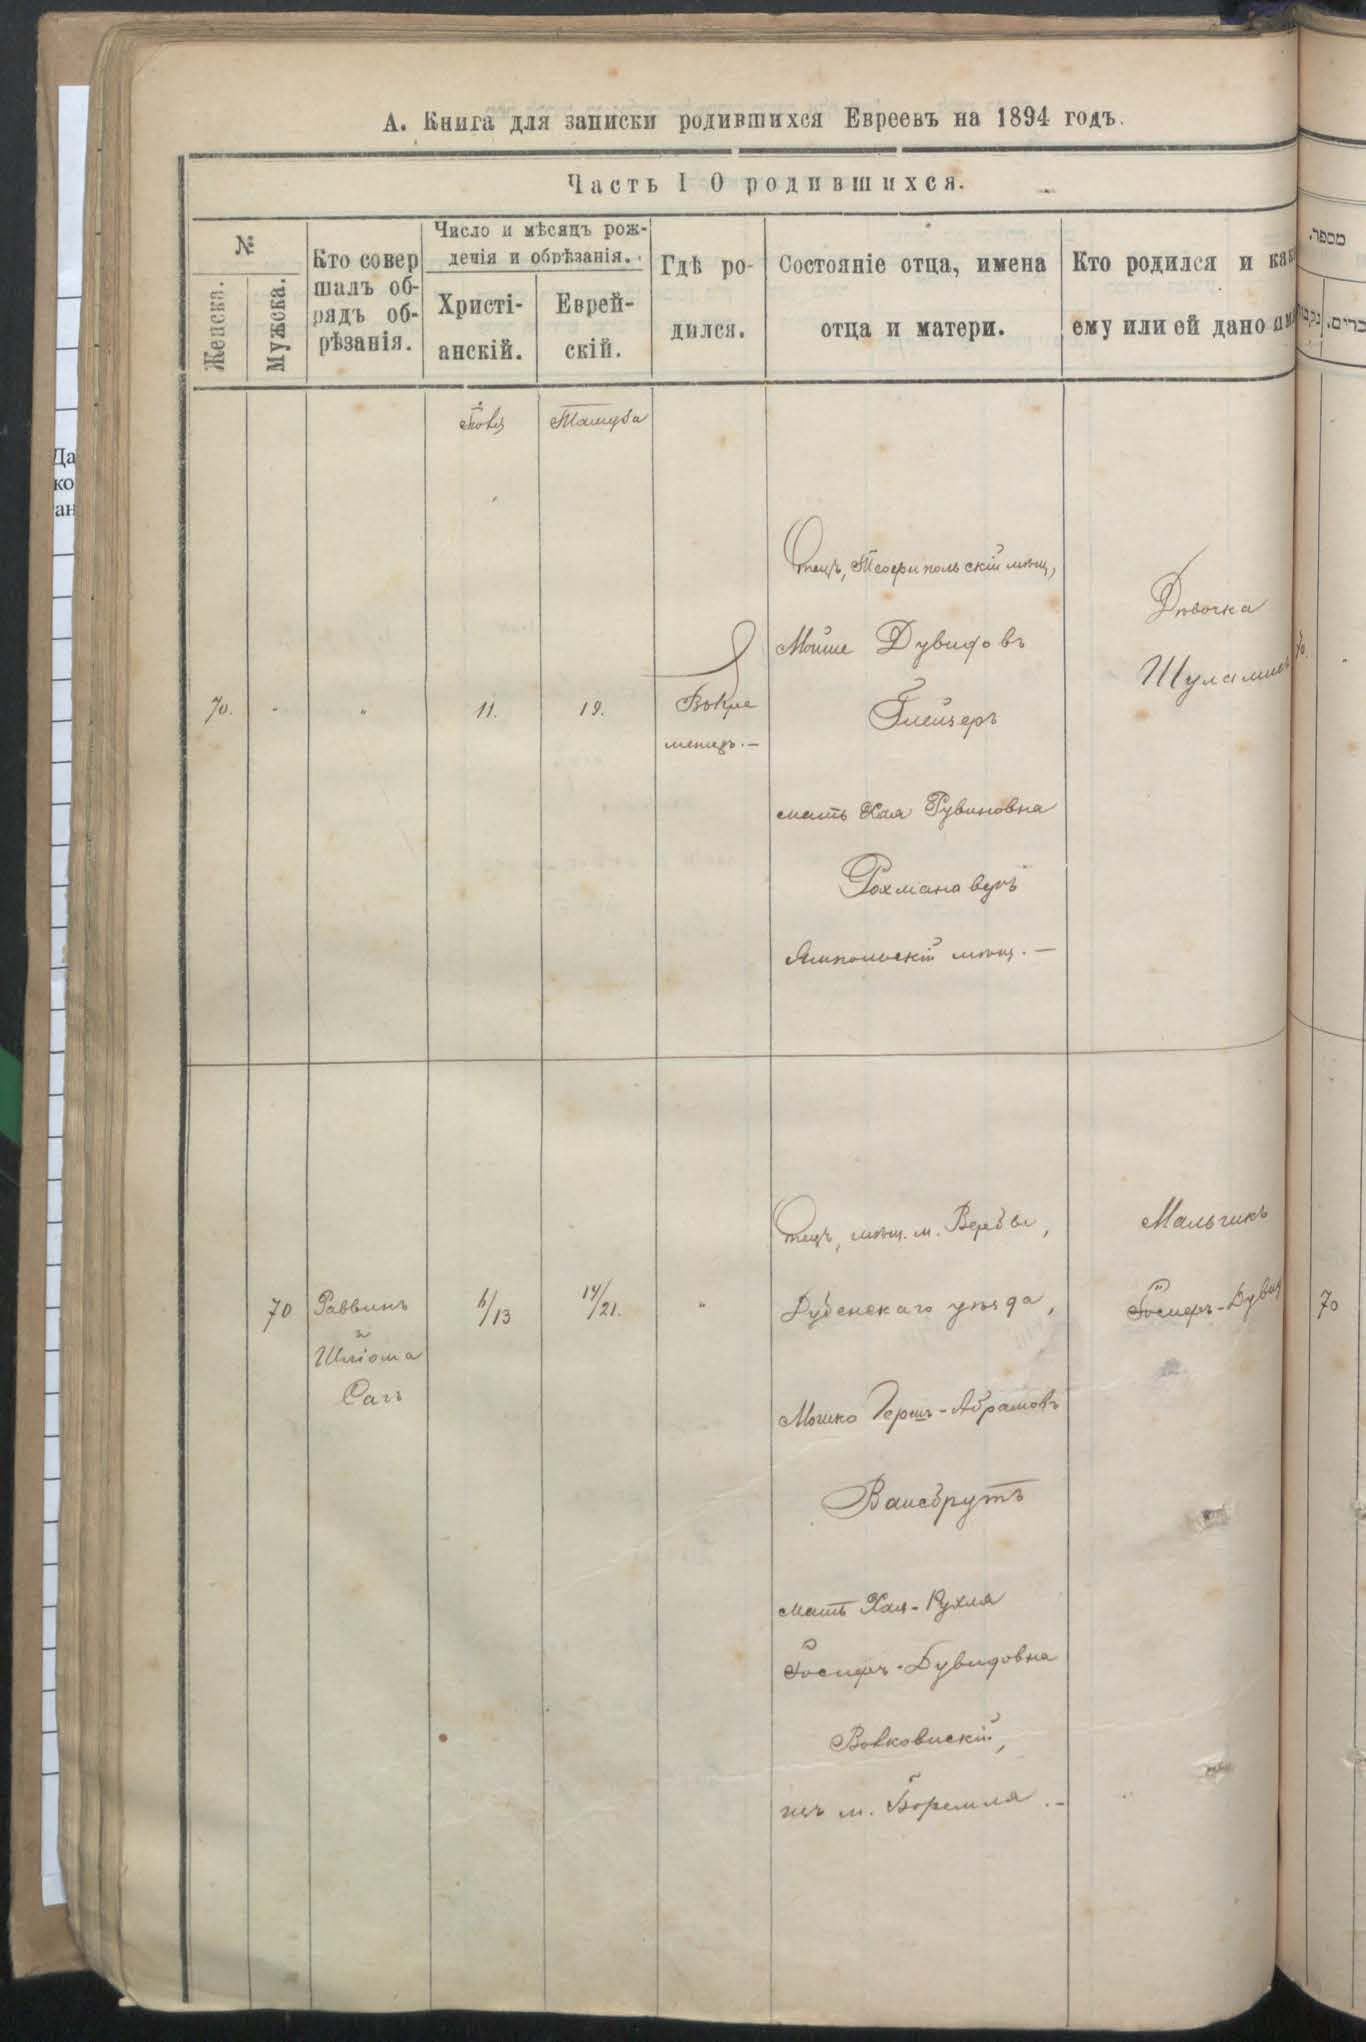 А. Книга для записки родившихся Евреевъ на 1894 годъ.
Часть I О родившихся.
№
Женска.
Мужска.
Кто совер
шалъ об-
рядъ об-
рѣзанія.
Число и мѣсяцъ рож-
денія и обрѣзанія.
Христі-
анскій.
Еврей-
скій.
Гдѣ ро-
дился.
Состояніе отца, имена
отца и матери.
Кто родился и как
ему или ей дано им
Іюля
Тамуза
70.
"
"
11.
19.
Въ Кре
менцѣ.—
Отецъ, Теофипольскій мѣщ,
Мойше Дувидовъ
Глейзеръ
мать Хая Рувиновна
Рохмана
Ямпольскій мѣщ.—
Дѣвочка
Шуламис
70
Раввинъ
и
Шліома
Сагъ
6/13
14/21.
"
Отецъ, мѣщ. м. Вербы,
Дубенскаго уѣзда,
Мошко Гершъ-Абрамовъ
Вайсбрутъ
мать Хая-Рухля
Іосифъ-Дувидовна
Вовковискій,
изъ м. Боремля.—
Мальчикъ
Іосифъ-Дувид
מספר.
נקבות
זכרים.
70.
"
70
Да
ко
ан